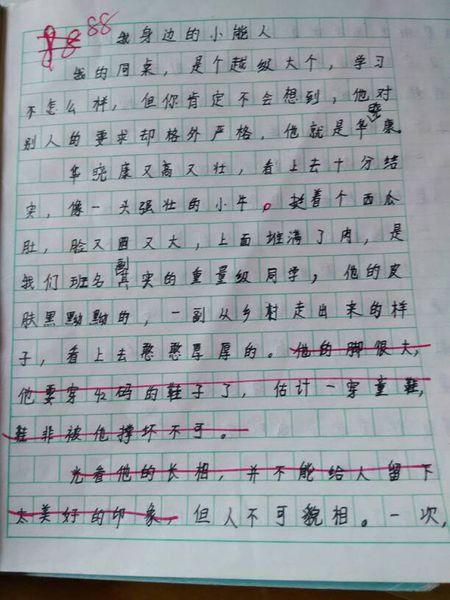 88
我身边的小能人
我的同桌，是个越级大个，学习
不怎么样，但你肯定不会想到，他对
别人的要求却格外严格，他就是华晓康
华晓康又高又壮，看上去十分结
实，像一头强壮的小牛。挺着个西瓜
肚，脸又圆又大，上面堆满了肉，是
我们班名副其实的重量级同学，他的皮
肤黑黝黝的，一副从乡村走出来的样
子，看上去憨憨厚厚的。他的脚很大，
他要穿42码的鞋子了，估计一穿童鞋，
鞋非被他撑坏不可。
光看他的长相，并不能给人留下
太美好的印象，但人不可貌相。一次，